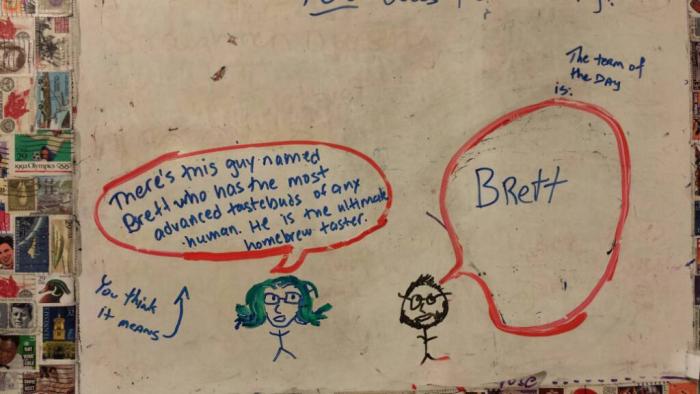 The term of
the DAY
is:
BRett
There's this guy named
Brett who has the most
advanced tastebuds of any
human. He is the ultimate
homebrew taster.
You think
it means